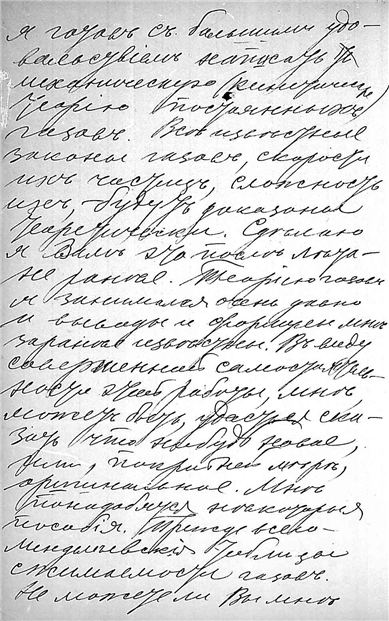 я готовъ съ большимъ удо-
вольствіемъ написать
механическую (кинетическ)
теорію постоянныхъ
газовъ. Всѣ извѣстные
законы газовъ, скорости
ихъ частицъ, сложность
ихъ, будутъ доказаны
теоретически. Сдѣлаю
я Вамъ это послѣ мая
не ранѣе. Теоріею газовъ
я занимался очень давно
и выводы и формулы мнѣ
заранѣе извѣстны. Въ виду
совершенной самостоятель-
ности этой работы, мнѣ,
можетъ быть, удастся ска-
зать что нибудь новое,
или, покрайней мѣрѣ,
оригинальное. Мнѣ
понадобятся нѣкоторыя
пособія. Прежде всего
менделеевскія таблицы
сжимаемости газовъ.
Не можете ли Вы мнѣ